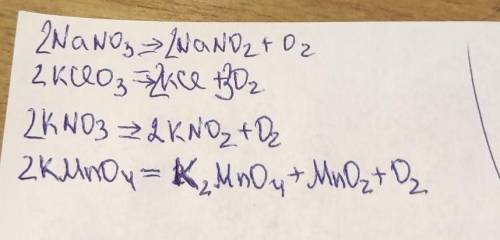 2NaNO₃ ⇒ 2NaNO₂ + O₂
2KClO₃ ⇒ 2KCl + 3O₂
2KNO₃ = 2KNO₂ + O₂
2KMnO₄ = K₂MnO₄ + MnO₂ + O₂